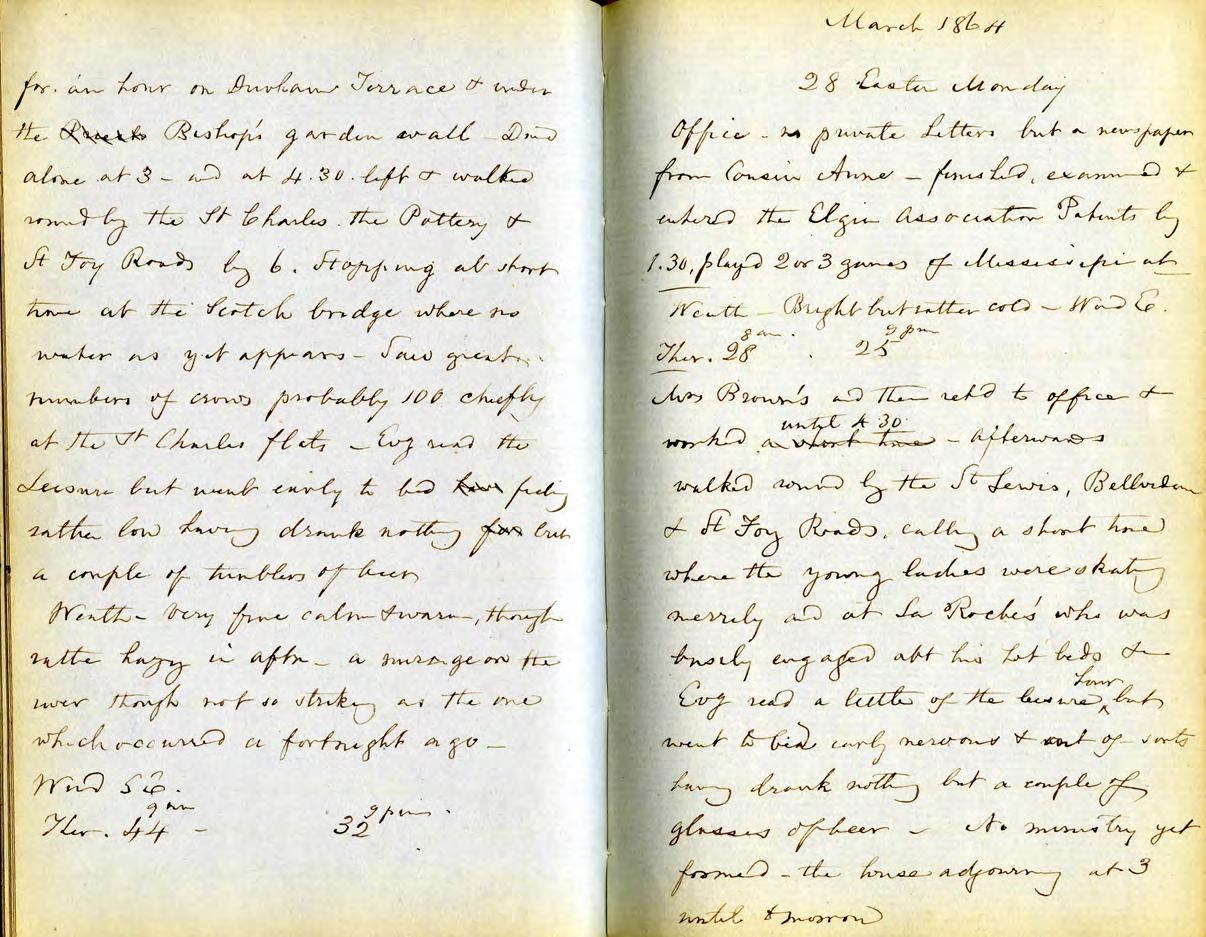 for an hour on Durham Terrace & under
the Bishop's garden wall - Dined
alone at 3 - and at 4.30 left & walked
round by the St Charles the Pottery &
St Foy Roads by 6. Stopping ab short
time at the Scotch bridge where no
water as yet appears - Saw great
numbers of crows probably 100 chiefly
at the St Charles flats - Evg read the
Leisure but went early to bed feeling
rather low having drank nothing but
a couple of tumblers of beer
Weath - Very fine calm & warm, though
rather hazy in aftn - a mirage on the
river though not so striking as the one
which occurred a fortnight ago -
Wind SE.
9 am 9 pm.
Ther. 44 - 32
March 1864
28 Easter Monday
Office - no private Letters but a newspaper
from Cousin Anne - finished, examined &
entered the Elgin Association Patents by
1.30, played 2 or 3 games of Mississippi at
Weath - Bright but rather cold - Wind E.
8 am. 9 pm
Ther. 28 . 25
Mrs Brown's and then retd to office &
until 4.30
worked a short time - afterwards
walked round by the St Lewis, Bellvidere
& St Foy Roads, calling a short time
where the young ladies were skating
merrily and at La Roche's who was
busily engaged abt his hot beds &
hour
Evg read a little of the leisure ‸ but
went to bed early nervous & out of sorts
having drank nothing but a couple of
glasses of beer - No ministry yet
formed - the house adjourning at 3
until tomorrow